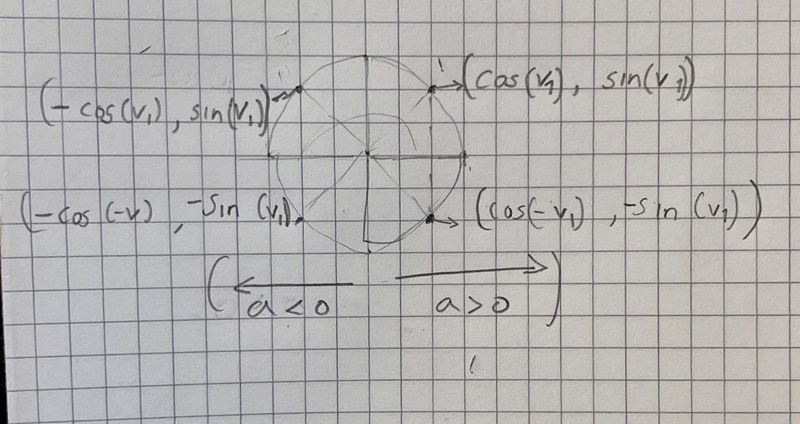 (cos(v₁), sin(v₁))
(-cos(v₁), sin(v₁))
(-cos(-v), -sin(v₁)
(cos(-v₁), -sin(v₁))
( a < 0 a > 0 )